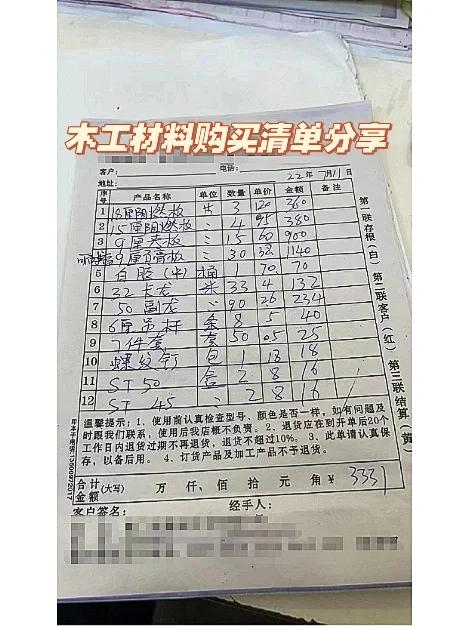 木工材料购买清单分享
客户: 电话:
地址: 22年7月11日
序号 产品名称 单位 数量 单价 金额 备注
1 18厘阻燃板 片 3 120 360
2 15厘阻燃板 〃 4 95 380
3 9厘夹板 〃 15 60 900
4 9厘石膏板 〃 30 38 1140
5 白胶(半) 桶 1 70 70
6 32卡龙 米 33 4 132
7 50副龙 〃 90 2.6 234
8 6厘吊杆 条 8 5 40
9 套 50 0.5 25
10 螺纹钉 包 1 18 18
11 ST50 盒 2 8 16
12 ST45 〃 2 8 16
第一联存根(白) 第二联客户(红) 第三联结算(黄)
温馨提示:1、使用前认真检查型号、颜色是否一样,如有问题及
时跟我们联系,使用后我店概不负责。2、退货应在到开单后20个
工作日内退货过期不再退货,退货不超过10%。3、此单请认真保
存,以备后用。4、订货产品及加工产品不予退货。
合计金额(大写) 万 仟、 佰 拾 元 角 ¥ 3331
客户签名: 经手人: